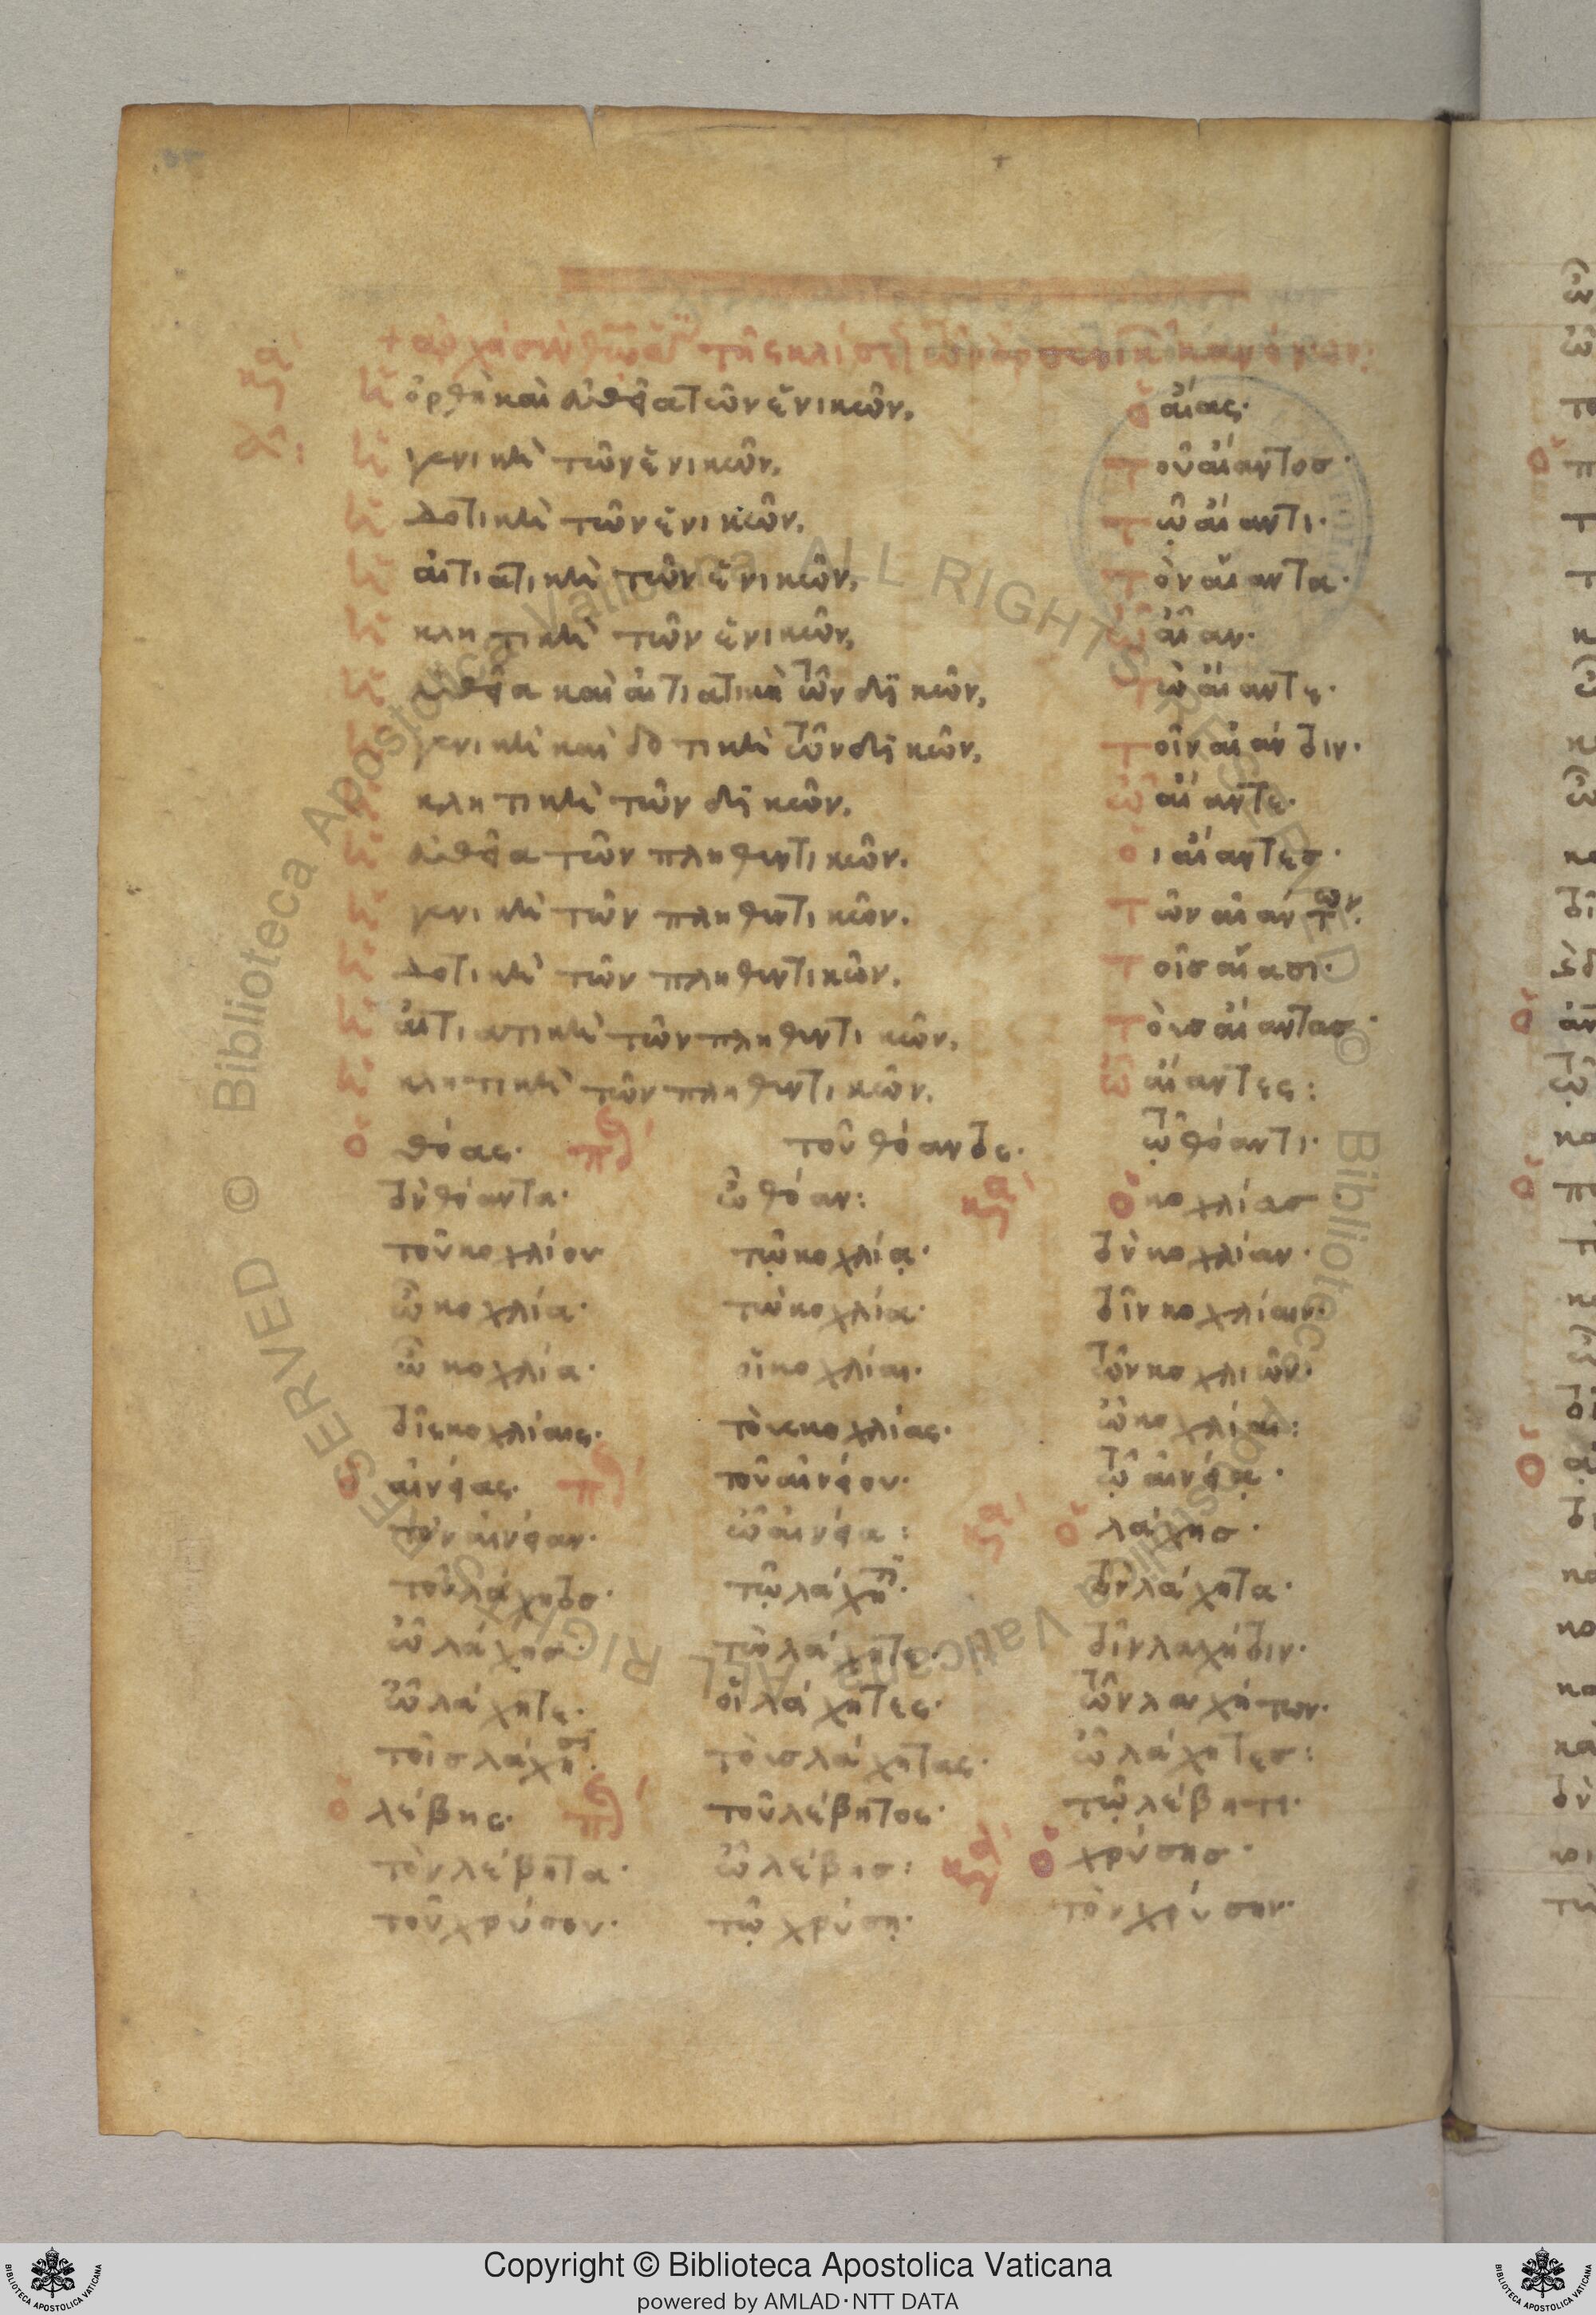 ὀρθὴ καὶ εὐθεῖα τῶν ἑνικῶν, ὁ αἴας·
γενικὴ τῶν ἑνικῶν, τοῦ αἴαντοσ·
δοτικὴ τῶν ἑνικῶν, τῷ αἴαντι·
αἰτιατικὴ τῶν ἑνικῶν, τὸν αἴαντα·
κλητικὴ τῶν ἑνικῶν, ὦ αἶαν·
εὐθεῖα καὶ αἰτιατικὴ τῶν δυϊκῶν, τὼ αἴαντε·
γενικὴ καὶ δοτικὴ τῶν δυϊκῶν, τοῖν αἰάντοιν·
κλητικὴ τῶν δυϊκῶν, ὦ αἴαντε·
εὐθεῖα τῶν πληθυντικῶν, οἱ αἴαντεσ·
γενικὴ τῶν πληθυντικῶν, τῶν αἰάντων·
δοτικὴ τῶν πληθυντικῶν, τοῖσ αἴασι·
αἰτιατικὴ τῶν πληθυντικῶν, τοὺσ αἴαντασ·
κλητικὴ τῶν πληθυντικῶν, ὦ αἴαντες:
ὁ θόας· τοῦ θόαντος· τῷ θόαντι·
τὸν θόαντα· ὦ θόαν: ὁ κοχλίασ
τοῦ κοχλίου τῷ κοχλίᾳ· τὸν κοχλίαν·
ὦ κοχλία· τὼ κοχλία· τοῖν κοχλίαιν·
ὦ κοχλία· οἱ κοχλίαι· τῶν κοχλιῶν·
τοῖς κοχλίαις· τοὺς κοχλίας· ὦ κοχλίαι:
ὁ αἰνέας· τοῦ αἰνέου· τῷ αἰνέᾳ·
τὸν αἰνέαν· ὦ αἰνέα: ὁ λάχησ·
τοῦ λάχητοσ· τῷ λάχητι· τὸν λάχητα·
ὦ λάχησ· τὼ λάχητε· τοῖν λαχήτοιν·
ὦ λάχητε· οἱ λάχητες· τῶν λαχήτων·
τοῖσ λάχησι· τοὺσ λάχητας· ὦ λάχητεσ:
ὁ λέβης· τοῦ λέβητος· τῷ λέβητι·
τὸν λέβητα· ὦ λέβησ: ὁ χρύσησ·
τοῦ χρύσου· τῷ χρύσῃ· τὸν χρύσην·
Copyright © Biblioteca Apostolica Vaticana
powered by AMLAD·NTT DATA